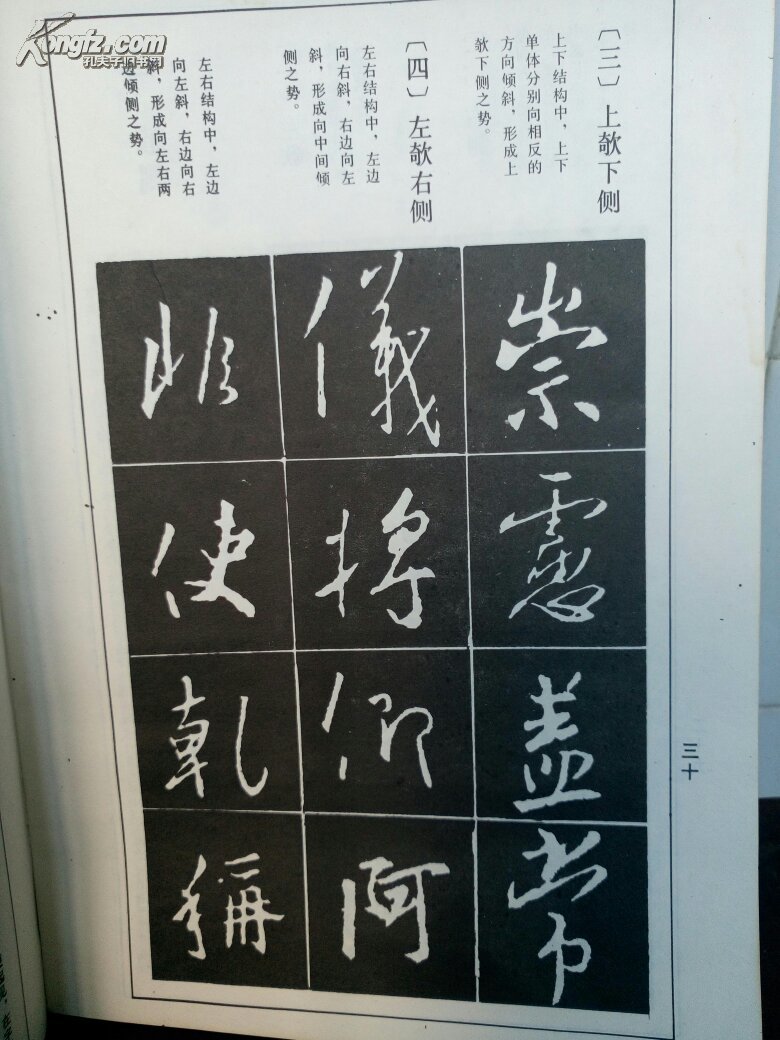 Kongfz.com
孔夫子旧书网
〔三〕上欹下侧
上下结构中，上下
单体分别向相反的
方向倾斜，形成上
欹下侧之势。
崇
灵
盖
常
〔四〕左欹右侧
左右结构中，左边
向右斜，右边向左
斜，形成向中间倾
侧之势。
儀
将
仰
阿
左右结构中，左边
向左斜，右边向右
斜，形成向左右两
边倾侧之势。
使
乾
稱
三十